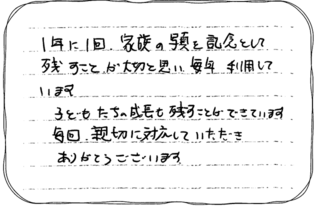 1年に1回、家族の写真を記念として
残すことが大切と思い、毎年利用して
います
子どもたちの成長も残すことができています
毎回、親切に対応していただき
ありがとうございます